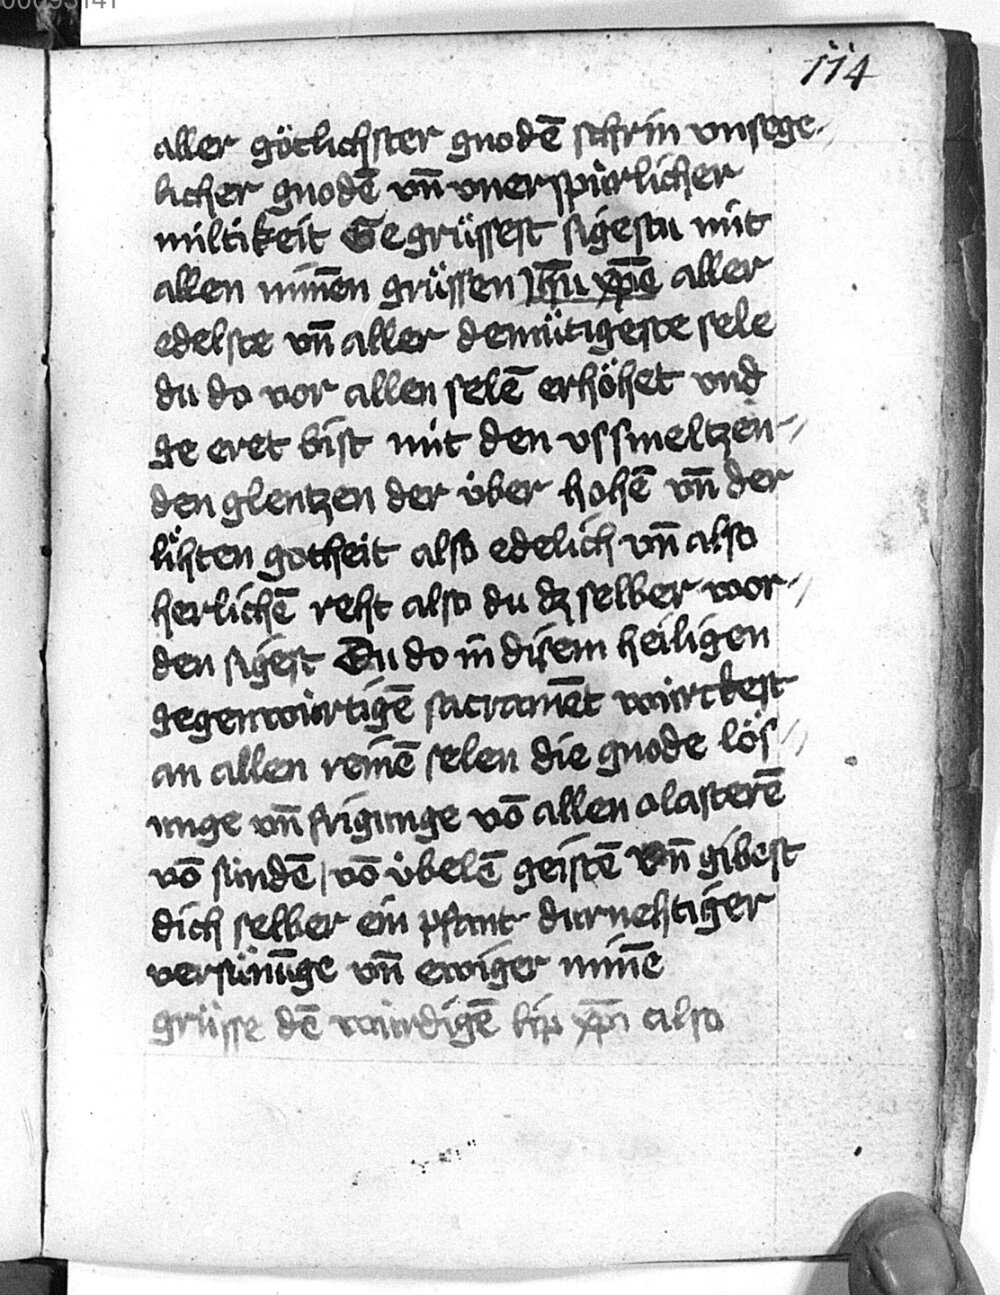 114
aller götlichster gnodē schrin vnsege-
licher gnodē vn̄ vnerspürlicher
miltikeit Gegrüssest sigestu mit
allen minnē grüssen Jhū xp̄e aller
edelste vn̄ aller demütigeste sele
du do vor allen selē erhöhet vnd
ge eret bist mit den vssmeltzen-
den glentzen der über hohē vn̄ der
lühten gotheit also edelich vn̄ also
herlichē reht also du dz selber wor-
den sigest Du do in disem heiligen
gegenwürtigē sacramēt würckest
an allen reinē selen die gnode lös-
unge vn̄ frigunge vō allen olasterē
vō sündē vō übelē geistē vn̄ gibest
dich selber ein pfant durnehtiger
versünūge vn̄ ewiger minē
grüsse dē würdigē lip xp̄i also